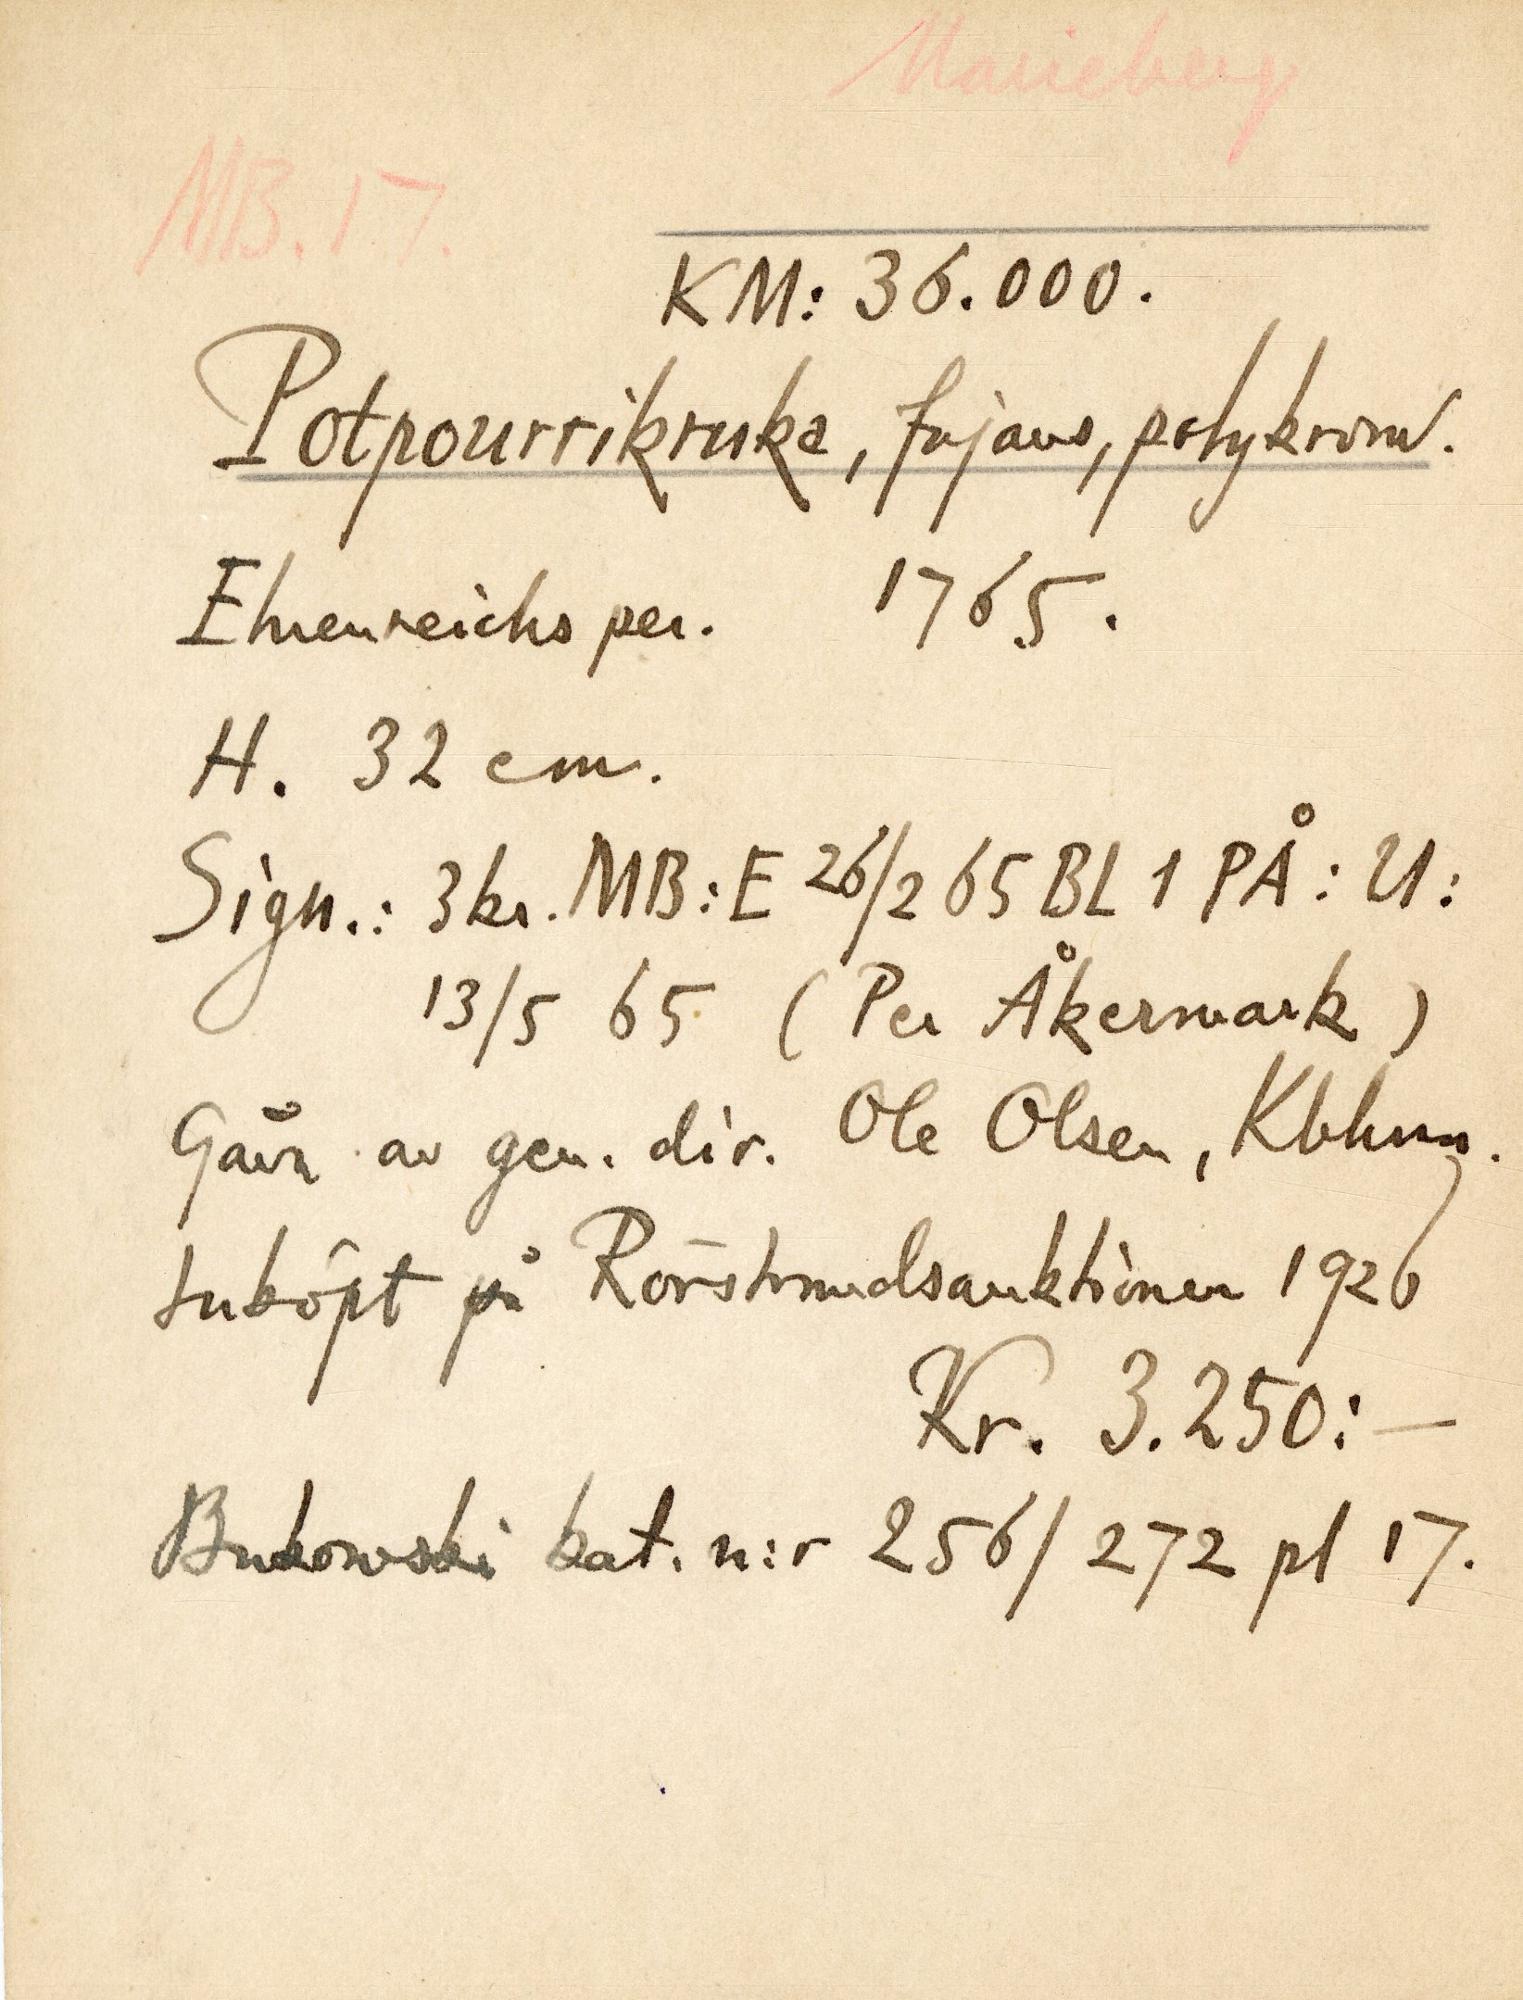 Marieberg
MB. 17.
KM: 36.000.
Potpourrikruka, fajans, polykrom.
Ehrenreichs per. 1765.
H. 32 cm.
Sign.: 3 kr. MB: E 26/2 65 BL 1 PÅ: U:
13/5 65 (Per Åkermark)
Gåva av gen. dir. Ole Olsen, Kbhmn.
Inköpt på Rörstrandsauktionen 1926
Kr. 3.250:–
Bukowski kat. n:r 256/272 pl 17.